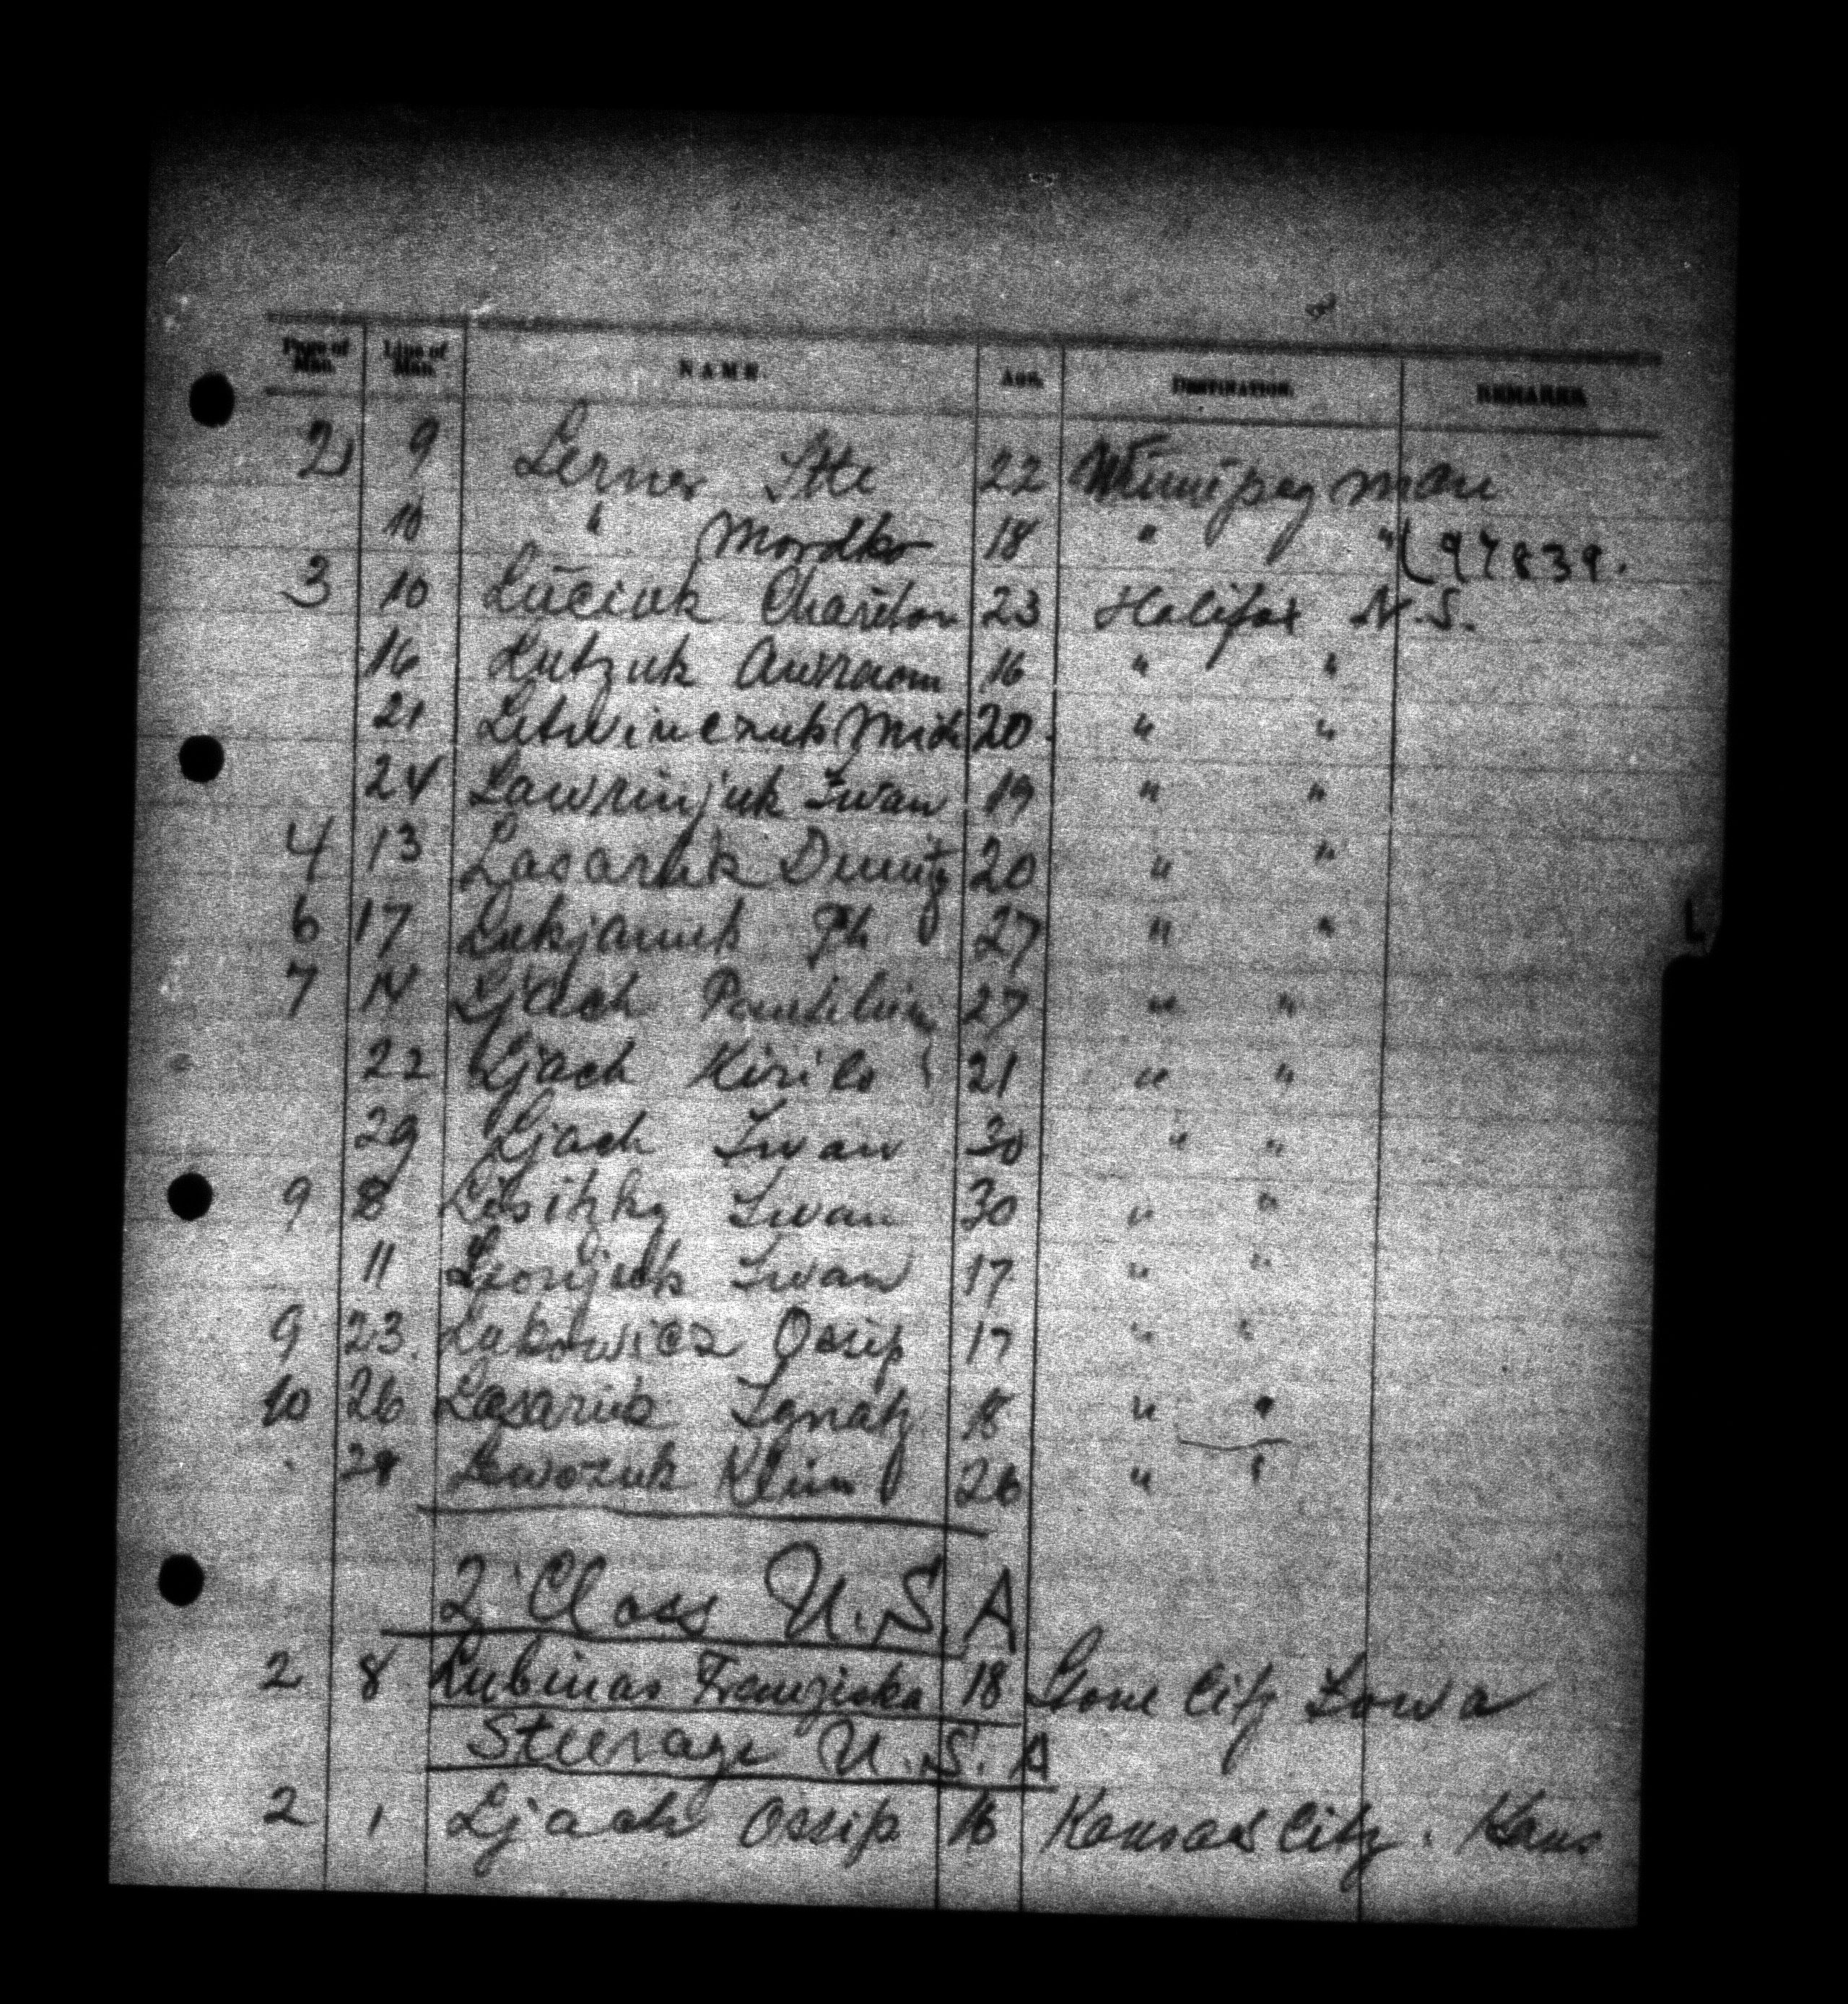 Page of Man. Line of Man. NAME. Age. DESTINATION. REMARKS.
2 9 Lerner Itte 22 Winnipeg Man
10 " Mordko 18 " " (97839.
3 10 Luciuk Chariton 23 Halifax N.S.
16 Lutzuk Awraam 16 " "
21 Litwinczuk Mich 20. " "
24 Lawrinjuk Iwan 19 " "
4 13 Lasaruk Dmitz 20 " "
6 17 Lukjanuk Ph 27 " "
L
7 14 Ljach 27 " "
22 Ljach Kirilo 21 " "
29 Ljach Iwan 30 " "
9 8 Iwan 30 " "
11 Iwan 17 " "
9 23. Lukowicz Ossip 17 " "
10 26 Lasaruk Ignatz 18 " "
" Klim 26 " "
2 Class U.S.A
2 8 Lubinas Franziska 18 City Iowa
Steerage U.S.A
2 1 Ljach Ossip 16 Kansas City. Kans